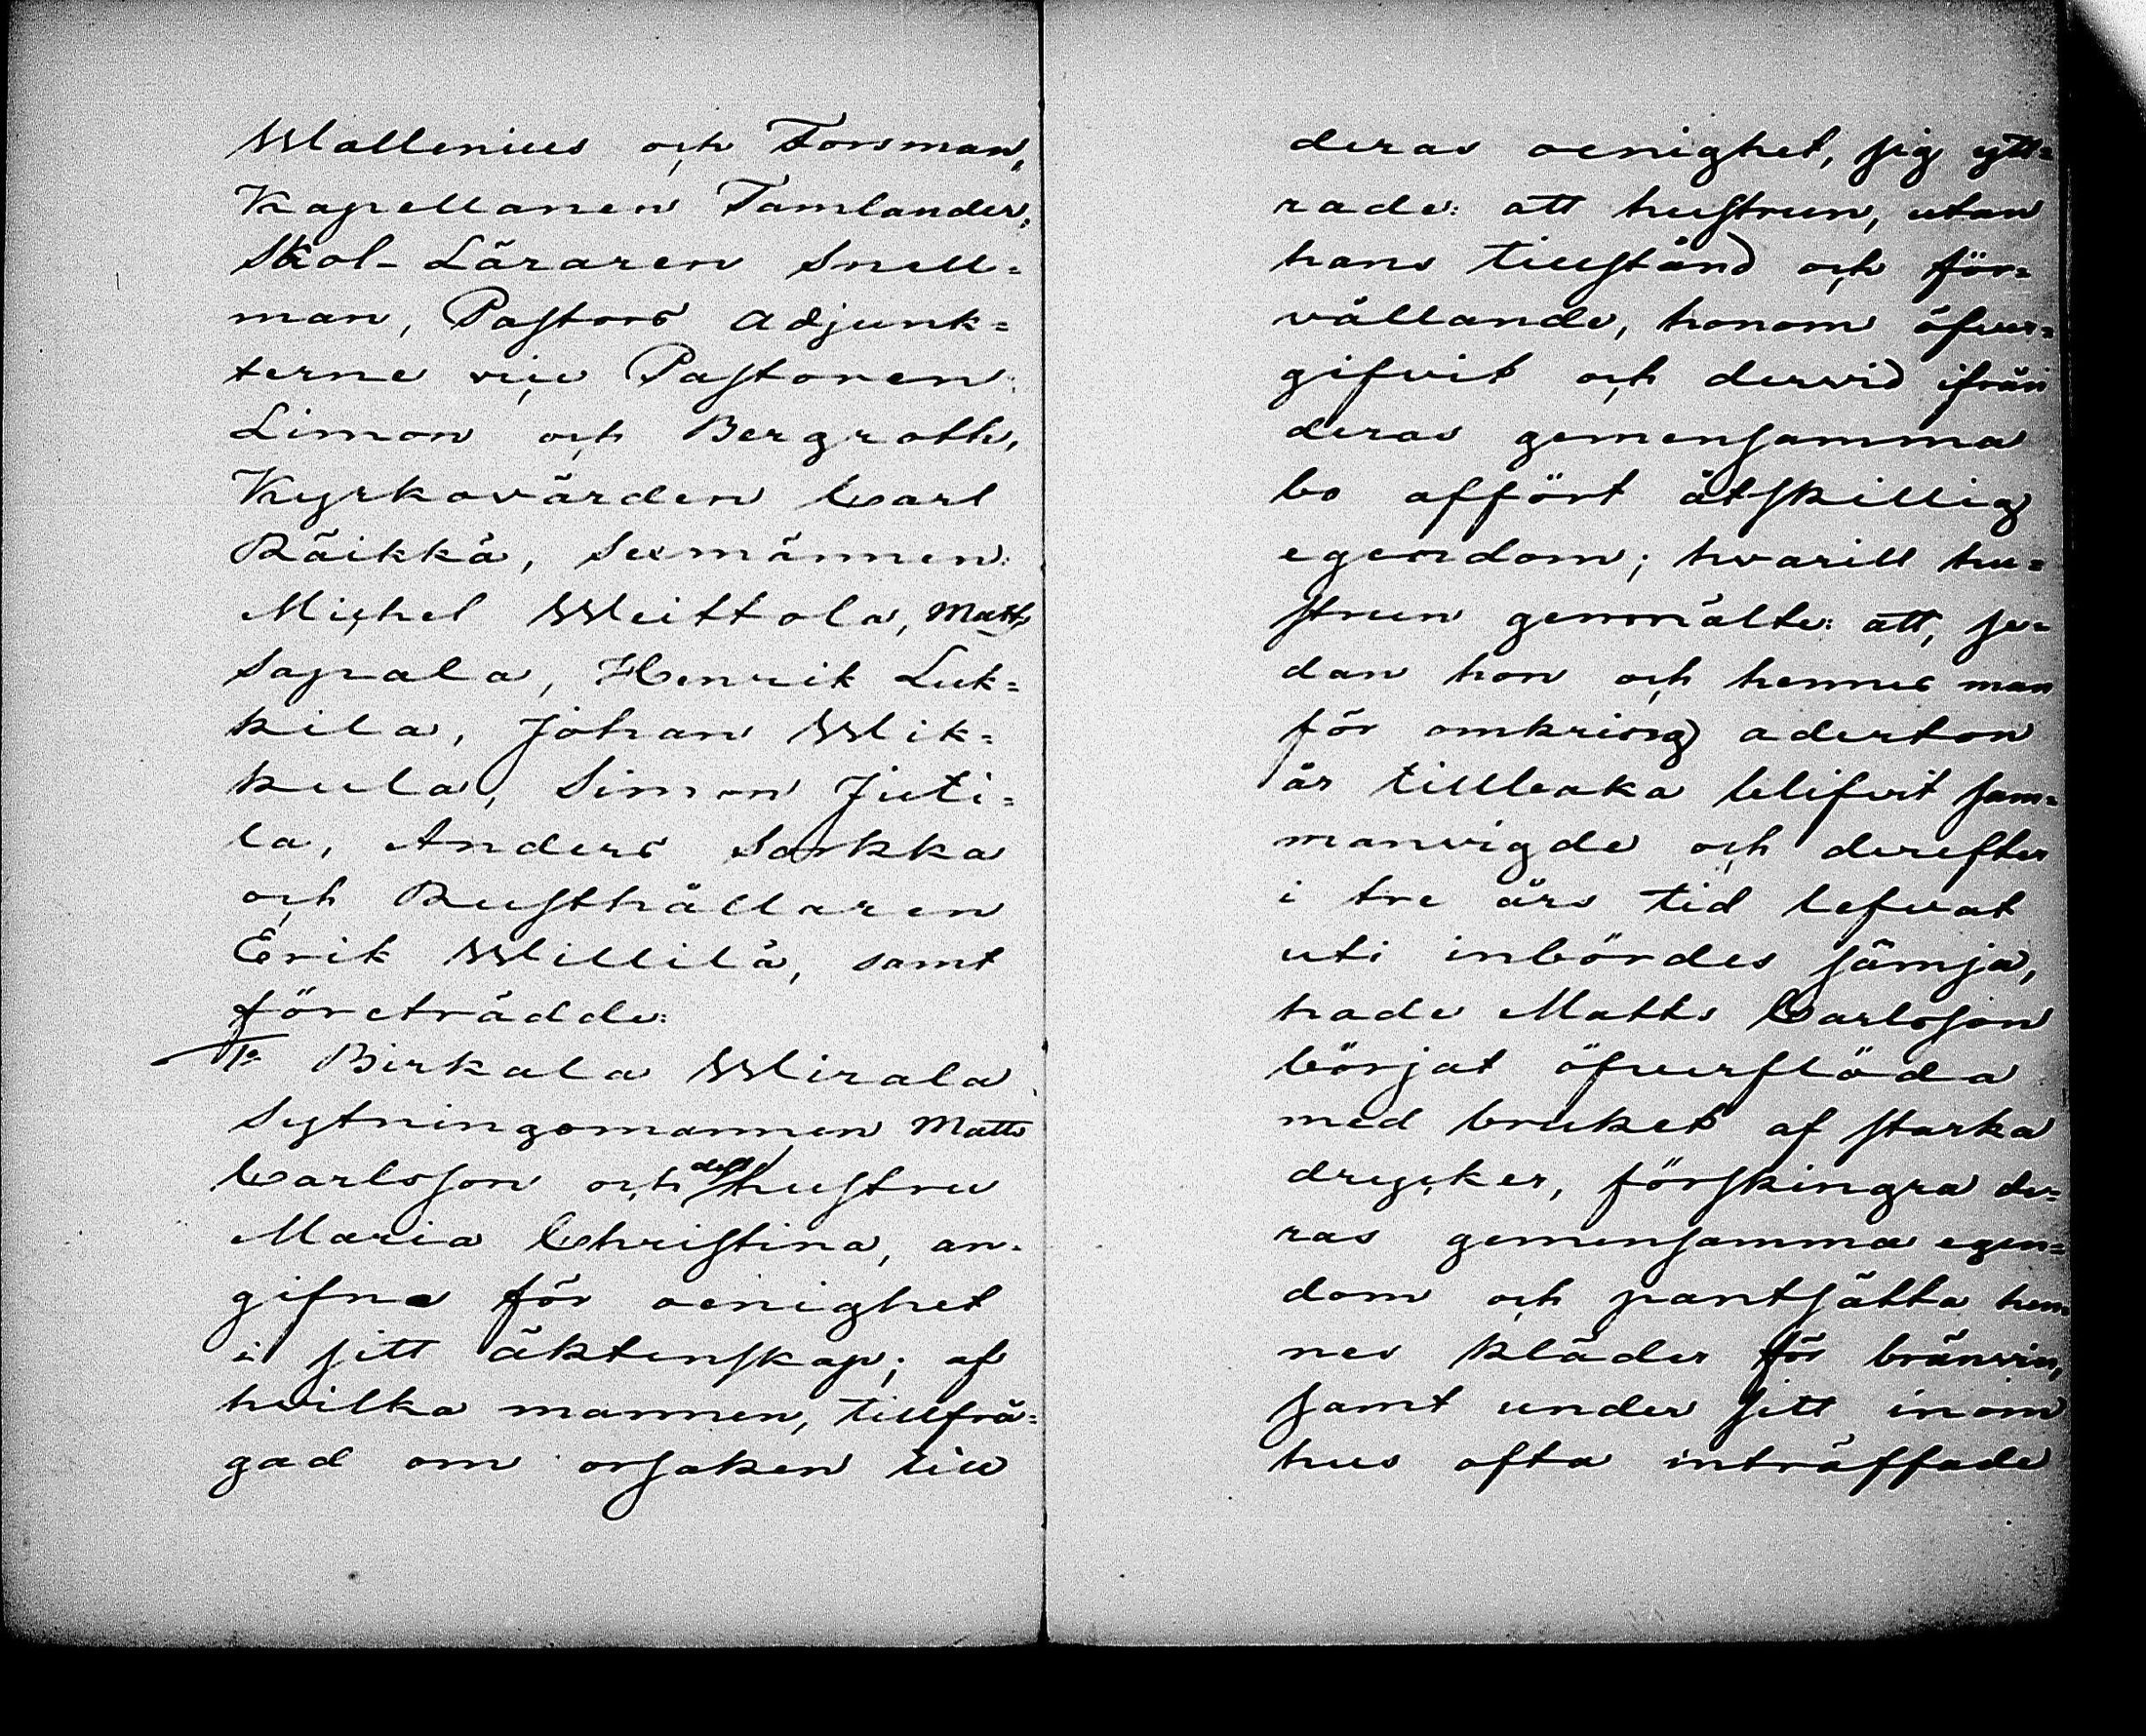 Wallenius och Forsman,
Kapellanen Tamlander,
Skol-Läraren Snell=
man, Pastors Adjunk=
terne vice Pastoren
Limon och Bergroth,
Kyrkovärden Carl
Räikkä, Sexmännen:
Michel Weittola, Matts
Sapala, Henrik Luk=
kila, Johan Wik=
kula, Simon Juti=
la, Anders Sorkka
och Rusthållaren
Erik Willilä, samt
företrädde:
1o Birkala Wirala
Sytningsmannen Matts
Carlsson och dess hustru
Maria Christina, an=
gifne för oenighet
i sitt äktenskap; af
hvilka mannen, tillfrå=
gad om orsaken till
deras oenighet, sig ytt=
rade: att hustrun, utan
hans tillstånd och för=
vållande, honom öfver=
gifvit och dervid ifrån
deras gemensamma
bo affört åtskillig
egendom; hvartill hu=
strun genmälte: att, se=
dan hon och hennes man
för omkring aderton
år tillbaka blifvit sam=
manvigde och derefter
i tre års tid lefvat
uti inbördes sämja,
hade Matts Carlsson
börjat öfverflöda
med bruket af starka
drycker, förskingra de=
ras gemensamma egen=
dom och pantsätta hen=
nes kläder för bränvin,
samt under sitt inom
hus ofta inträffade